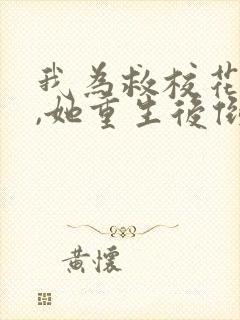 我為救校花
,她重生後倒
黃懷